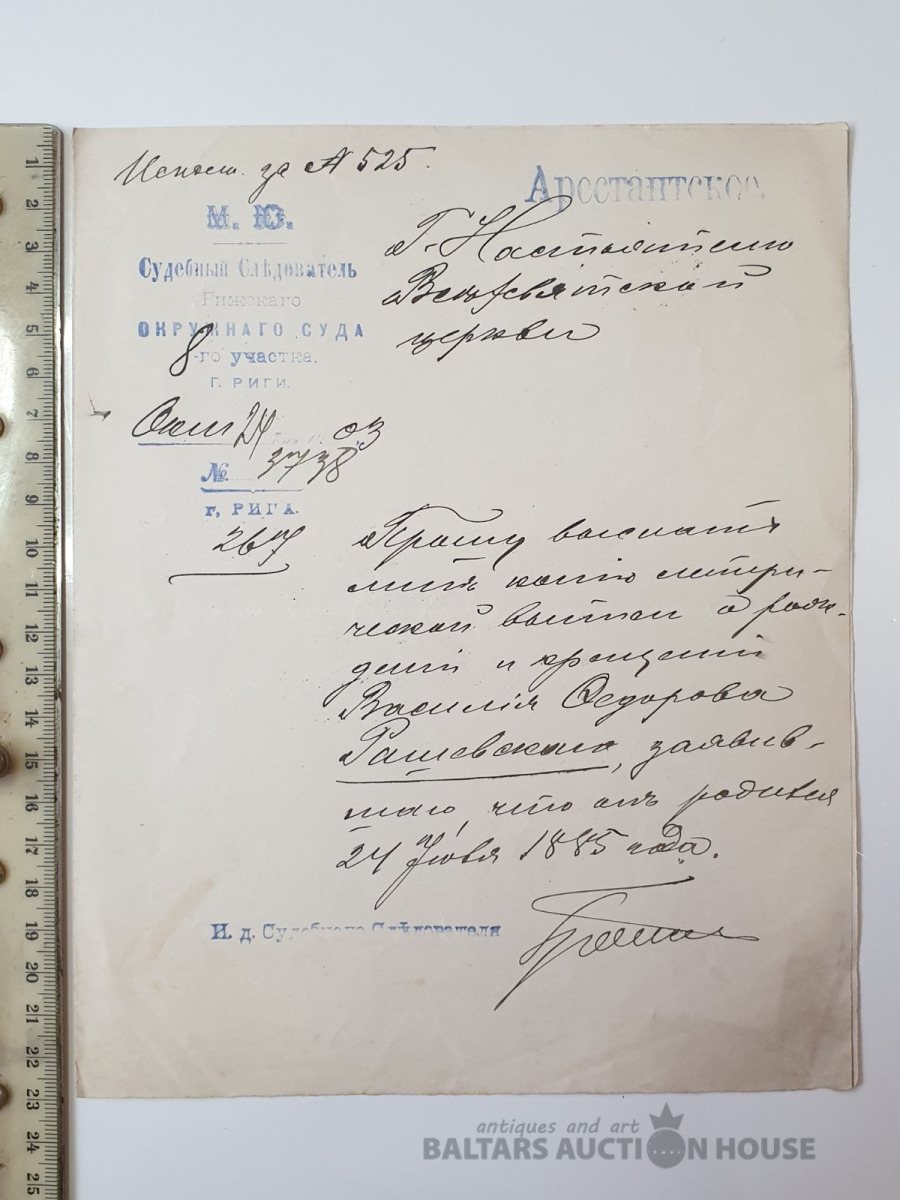 Исполн. за № 525.
Арестантское.
М. Ю.
Судебный Слѣдователь
Рижскаго
ОКРУЖНАГО СУДА
8-го участка,
Г. РИГИ.
Окт 24 03
№ 3738
г. РИГА.
267
Г. Настоятелю
Всехсвятской
церкви
Прошу выслать
мнѣ копію метри-
ческой выписи о рож-
деніи и крещеніи
Василія Федорова
Рашевскаго, заявив-
шаго, что онъ родился
24 Іюля 1885 года.
И. д. Судебнаго Слѣдователя
antiques and art
BALTARS AUCTION HOUSE
1 2 3 4 5 6 7 8 9 10 11 12 13 14 15 16 17 18 19 20 21 22 23 24 25